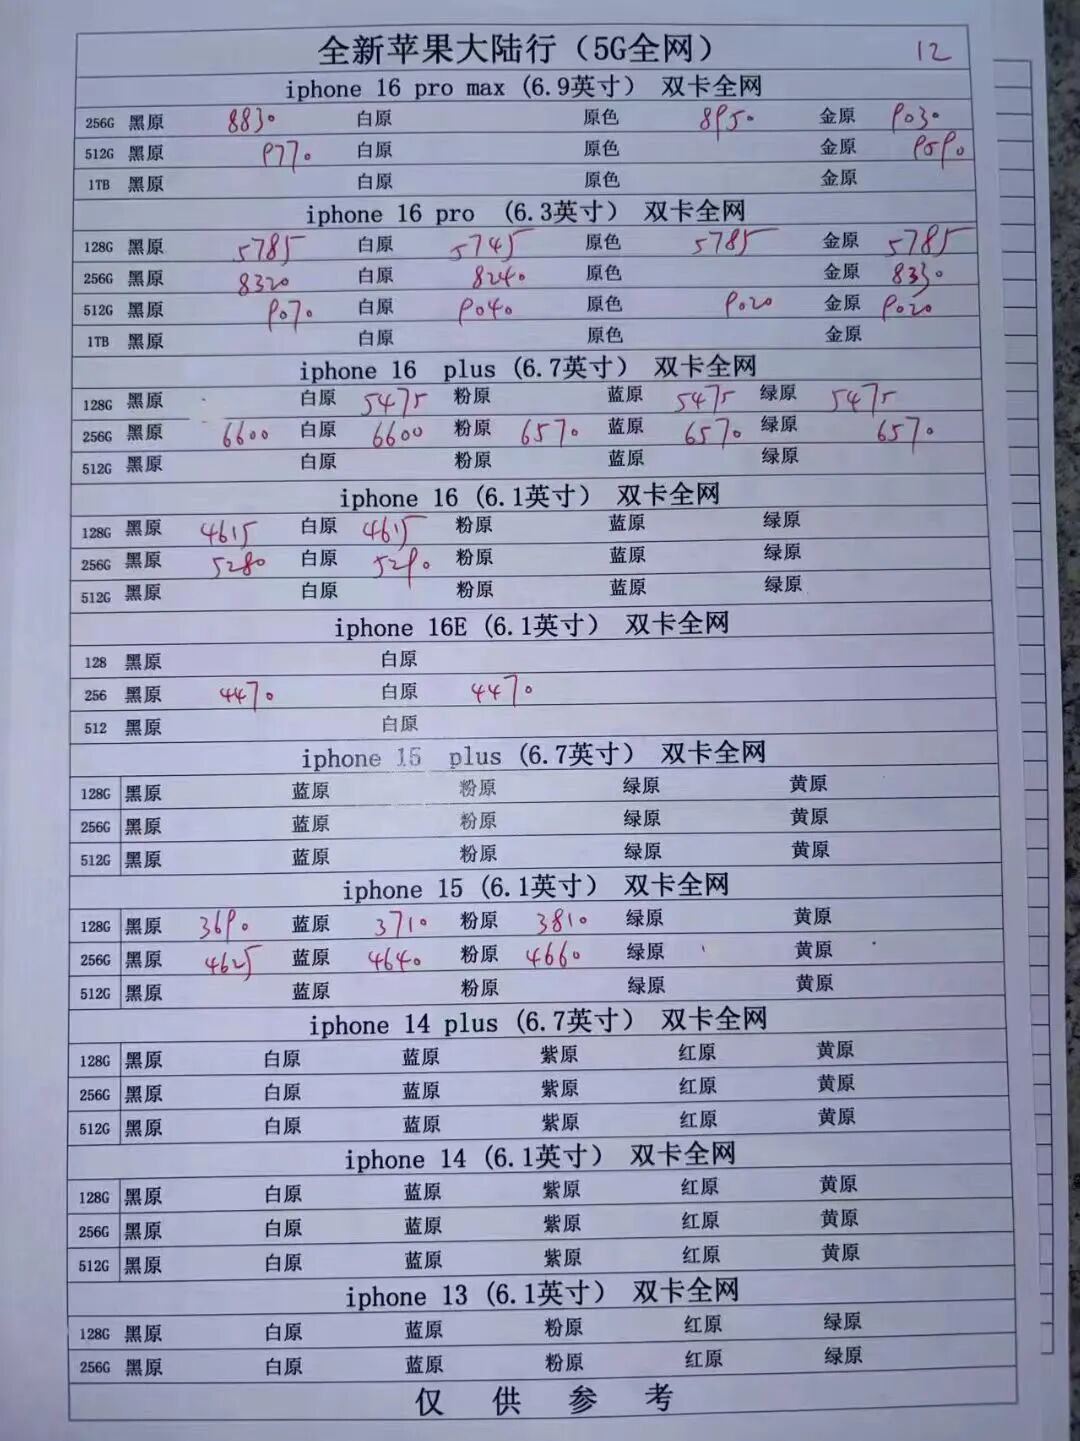 全新苹果大陆行（5G全网） 12
iphone 16 pro max (6.9英寸） 双卡全网
256G 黑原 8830 白原 原色 8950 金原 9030
512G 黑原 9770 白原 原色 金原 9590
1TB 黑原 白原 原色 金原
iphone 16 pro （6.3英寸） 双卡全网
128G 黑原 5785 白原 5745 原色 5785 金原 5785
256G 黑原 8320 白原 8240 原色 金原 8330
512G 黑原 9070 白原 9040 原色 9020 金原 9020
1TB 黑原 白原 原色 金原
iphone 16 plus (6.7英寸） 双卡全网
128G 黑原 白原 5475 粉原 蓝原 5475 绿原 5475
256G 黑原 6600 白原 6600 粉原 6570 蓝原 6570 绿原 6570
512G 黑原 白原 粉原 蓝原 绿原
iphone 16 (6.1英寸） 双卡全网
128G 黑原 4615 白原 4615 粉原 蓝原 绿原
256G 黑原 5280 白原 5290 粉原 蓝原 绿原
512G 黑原 白原 粉原 蓝原 绿原
iphone 16E (6.1英寸） 双卡全网
128 黑原 白原
256 黑原 4470 白原 4470
512 黑原 白原
iphone 15 plus (6.7英寸） 双卡全网
128G 黑原 蓝原 粉原 绿原 黄原
256G 黑原 蓝原 粉原 绿原 黄原
512G 黑原 蓝原 粉原 绿原 黄原
iphone 15 (6.1英寸） 双卡全网
128G 黑原 3690 蓝原 3710 粉原 3810 绿原 黄原
256G 黑原 4625 蓝原 4640 粉原 4660 绿原 黄原
512G 黑原 蓝原 粉原 绿原 黄原
iphone 14 plus (6.7英寸） 双卡全网
128G 黑原 白原 蓝原 紫原 红原 黄原
256G 黑原 白原 蓝原 紫原 红原 黄原
512G 黑原 白原 蓝原 紫原 红原 黄原
iphone 14 (6.1英寸） 双卡全网
128G 黑原 白原 蓝原 紫原 红原 黄原
256G 黑原 白原 蓝原 紫原 红原 黄原
512G 黑原 白原 蓝原 紫原 红原 黄原
iphone 13 (6.1英寸） 双卡全网
128G 黑原 白原 蓝原 粉原 红原 绿原
256G 黑原 白原 蓝原 粉原 红原 绿原
仅 供 参 考